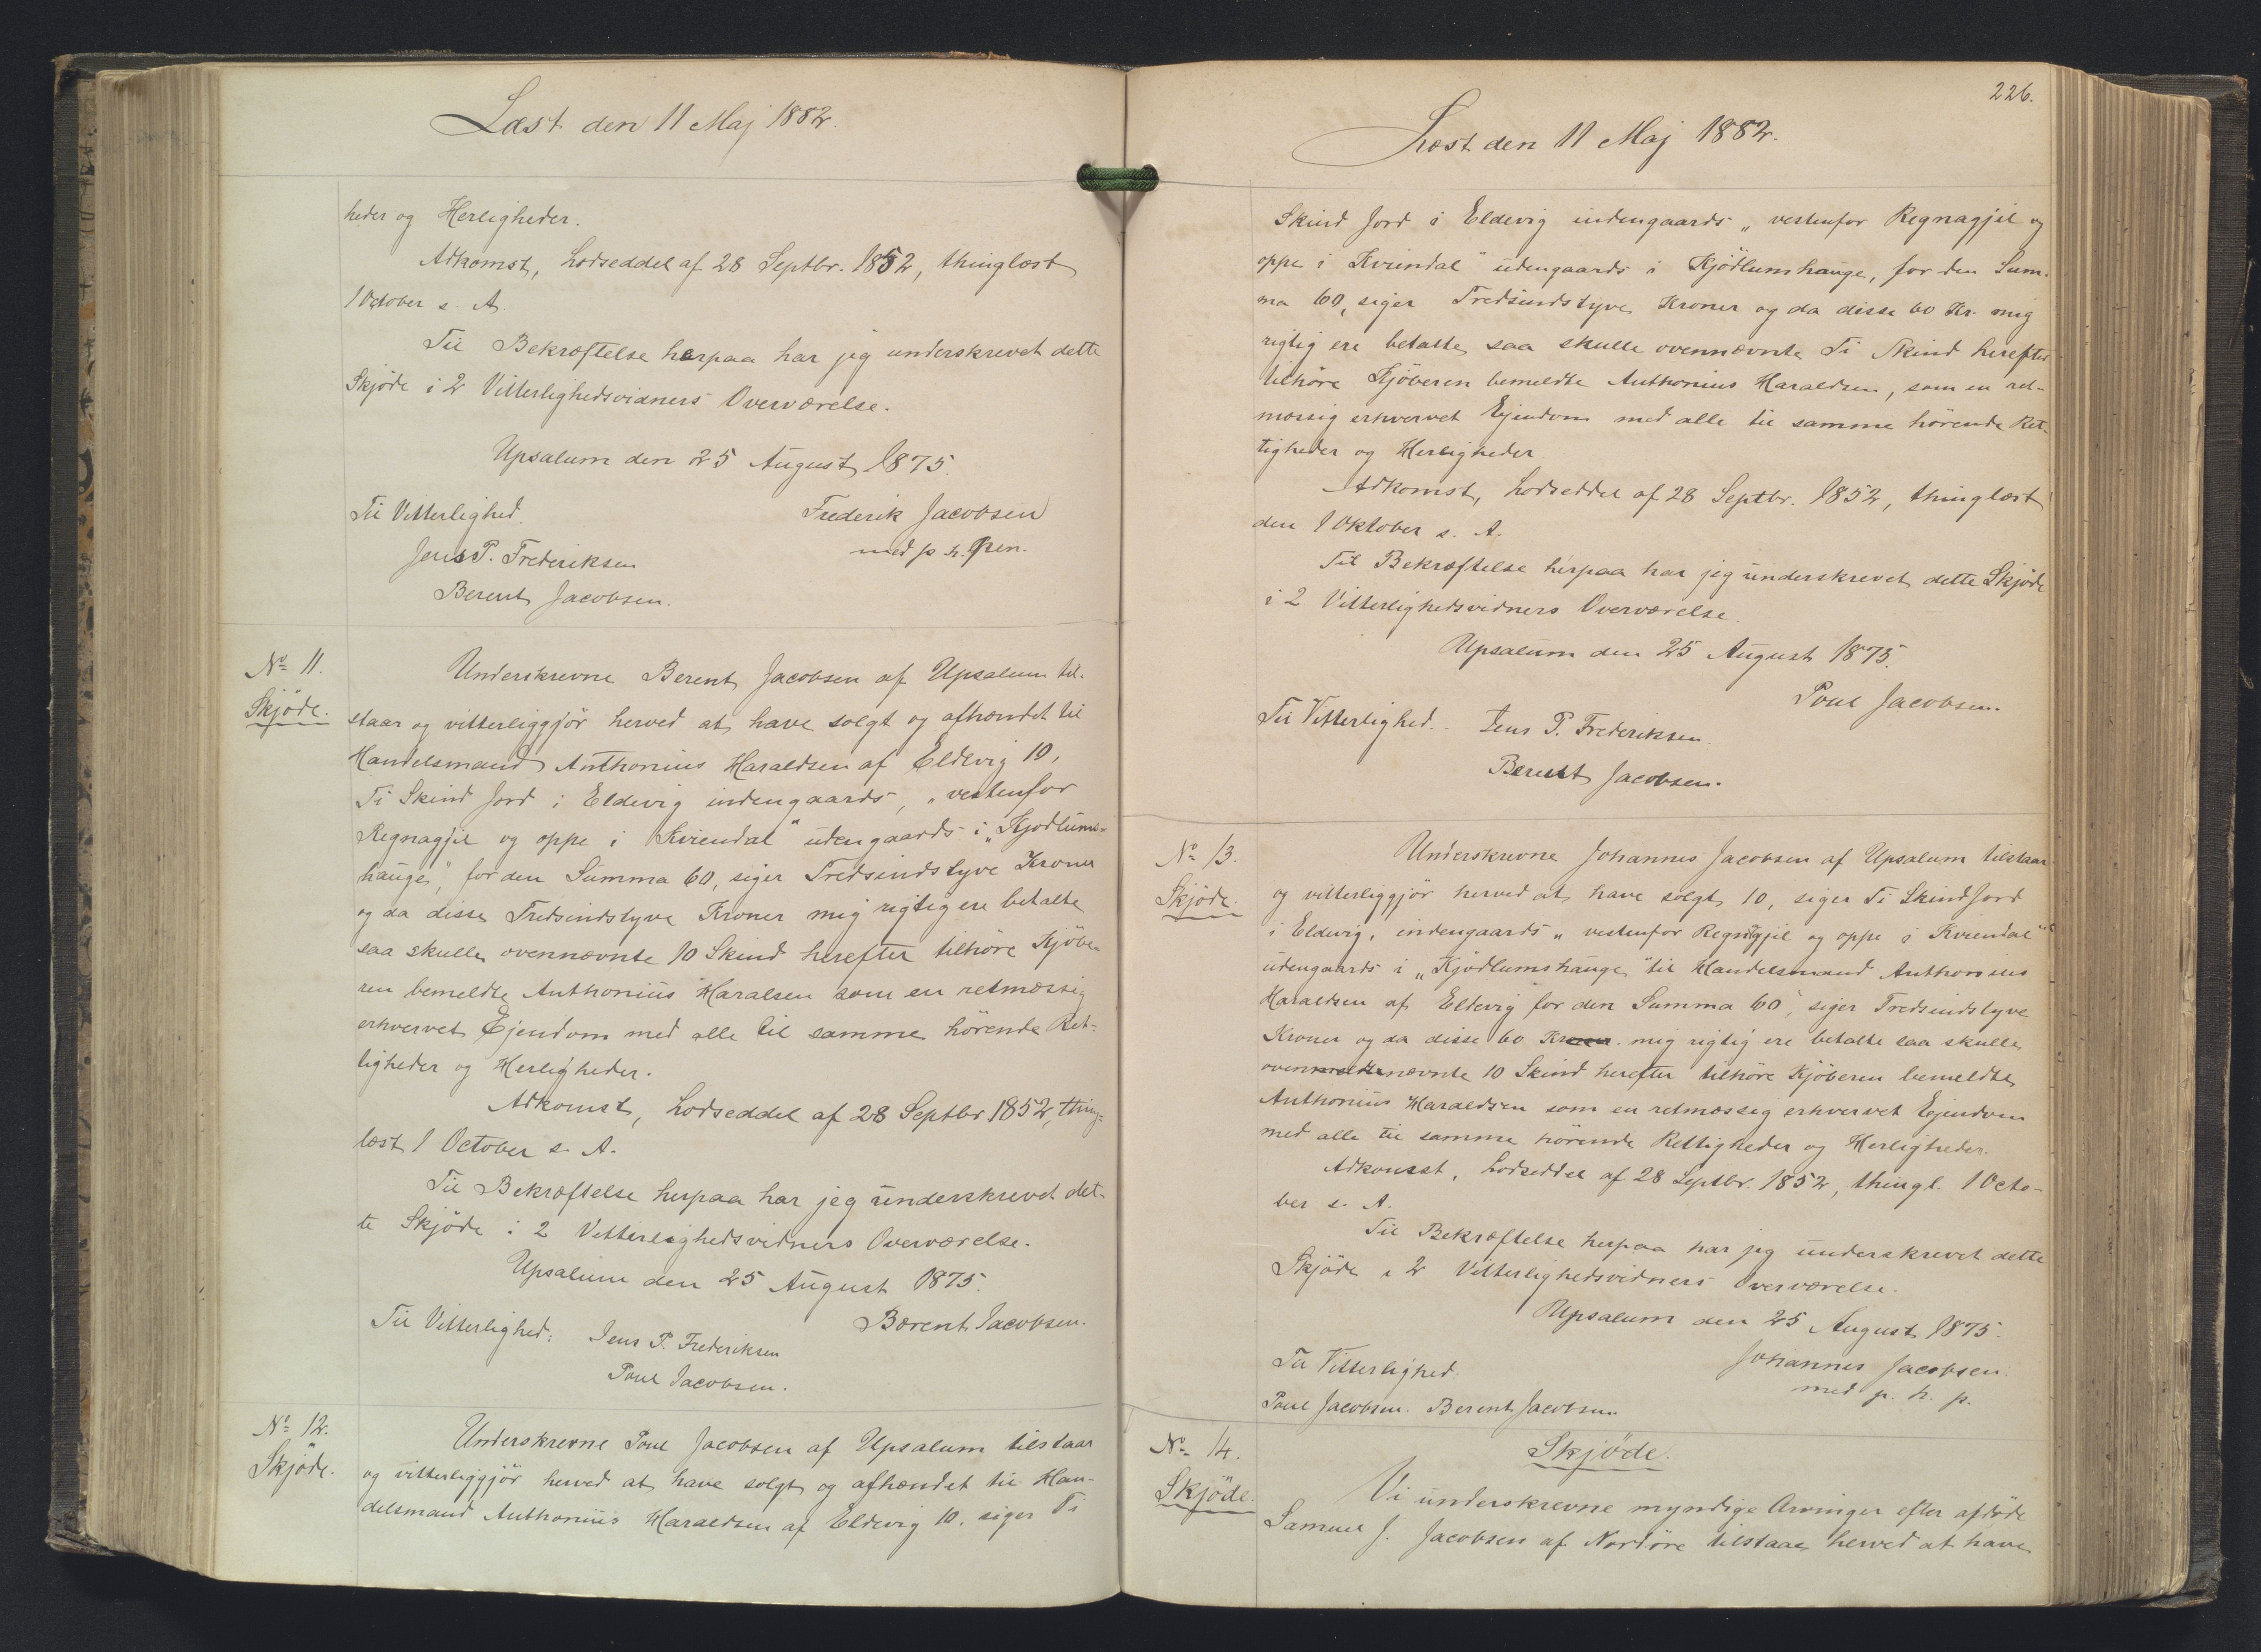 Læst den 11 Maj 1882.
heder og Herligheder.
Adkomst, Lodseddel af 28 Septbr. 1852, thinglæst
1 October s. A.
Til Bekræftelse herpaa har jeg underskrevet dette
Skjöde i 2 Vitterlighedsvidners Overværelse.
Upsalum den 25 August 1875.
Til Vitterlighed.
Frederik Jacobsen
Jens P. Frederiksen
med p. h. Pen.
Berent Jacobsen.
No 11.
Skjöde.
Underskrevne Berent Jacobsen af Upsalum til-
staar og vitterliggjör herved at have solgt og afhændet til
Handelsmand Anthonius Haraldsen af Eldevig 10,
Ti Skind Jord i Eldevig indengaards, "vestenfor
Regnagjil og oppe i Kviendal" udengaards i "Kjodlums-
hauge", for den Summa 60, siger Tredsindstyve Kroner
og da disse Tredsindstyve Kroner mig rigtig ere betalte
saa skulle ovennævnte 10 Skind herefter tilhöre Kjöbe-
ren bemeldte Anthonius Haralsen som en retmæssig
erhvervet Ejendom med alle til samme hörende Ret-
tigheder og Herligheder.
Adkomst, Lodseddel af 28 Septbr 1852, thing-
læst 1 October s. A.
Til Bekræftelse herpaa har jeg underskrevet det-
te Skjöde i 2 Vitterlighedsvidners Overværelse.
Upsalum den 25 August 1875.
Til Vitterlighed: Jens P. Frederiksen
Bærent Jacobsen.
Poul Jacobsen.
No 12.
Skjöde.
Underskrevne Poul Jacobsen af Upsalum tilstaar
og vitterliggjör herved at have solgt og afhændet til Han-
delsmand Anthonius Haraldsen af Eldevig 10, siger Ti
226.
Læst den 11 Maj 1882.
Skind Jord i Eldevig indengaards "vestenfor Regnagjil og
oppe i Kviendal" udengaards i Kjödlumshauge, for den Sum-
ma 60, siger Tredsindstyve Kroner og da disse 60 Kr. mig
rigtig ere betalte, saa skulle ovennævnte Ti Skind herefter
tilhöre Kjöberen bemeldte Anthonius Haraldsen, som en ret-
mæssig erhvervet Ejendom med alle til samme hörende Ret-
tigheder og Herligheder.
Adkomst, Lodseddel af 28 Septbr. 1852, thinglæst
den 1 Oktober s. A.
Til Bekræftelse herpaa har jeg underskrevet dette Skjöde
i 2 Vitterlighedsvidners Overværelse.
Upsalum den 25 August 1875.
Poul Jacobsen.
Til Vitterlighed. Jens P. Frederiksen.
Berent Jacobsen.
No 13.
Skjöde.
Underskrevne Johannes Jacobsen af Upsalum tilstaar
og vitterliggjör herved at have solgt 10, siger Ti Skind Jord
i Eldevig, indengaards "vestenfor Regnagjil og oppe i Kviendal"
udengaards i "Kjödlumshauge" til Handelsmand Anthonius
Haraldsen af Eldevig for den Summa 60, siger Tredsindstyve
Kroner og da disse 60 Kroner mig rigtig ere betalte saa skulle
ovenmeldtenævnte 10 Skind herefter tilhöre Kjöberen bemeldte
Anthonius Haraldsen som en retmæssig erhvervet Ejendom
med alle til samme hörende Rettigheder og Herligheder.
Adkomst, Lodseddel af 28 Septbr. 1852, thingl. 1 Octo-
ber s. A.
Til Bekræftelse herpaa har jeg underskrevet dette
Skjöde i 2 Vitterlighedsvidners Overværelse.
Upsalum den 25 August 1875.
Til Vitterlighed.
Johannes Jacobsen.
med p. h. p.
Poul Jacobsen. Berent Jacobsen.
No 14.
Skjöde.
Skjöde.
Vi underskrevne myndige Arvinger efter afdöde
Samuel J. Jacobsen af Nordöre tilstaae herved at have